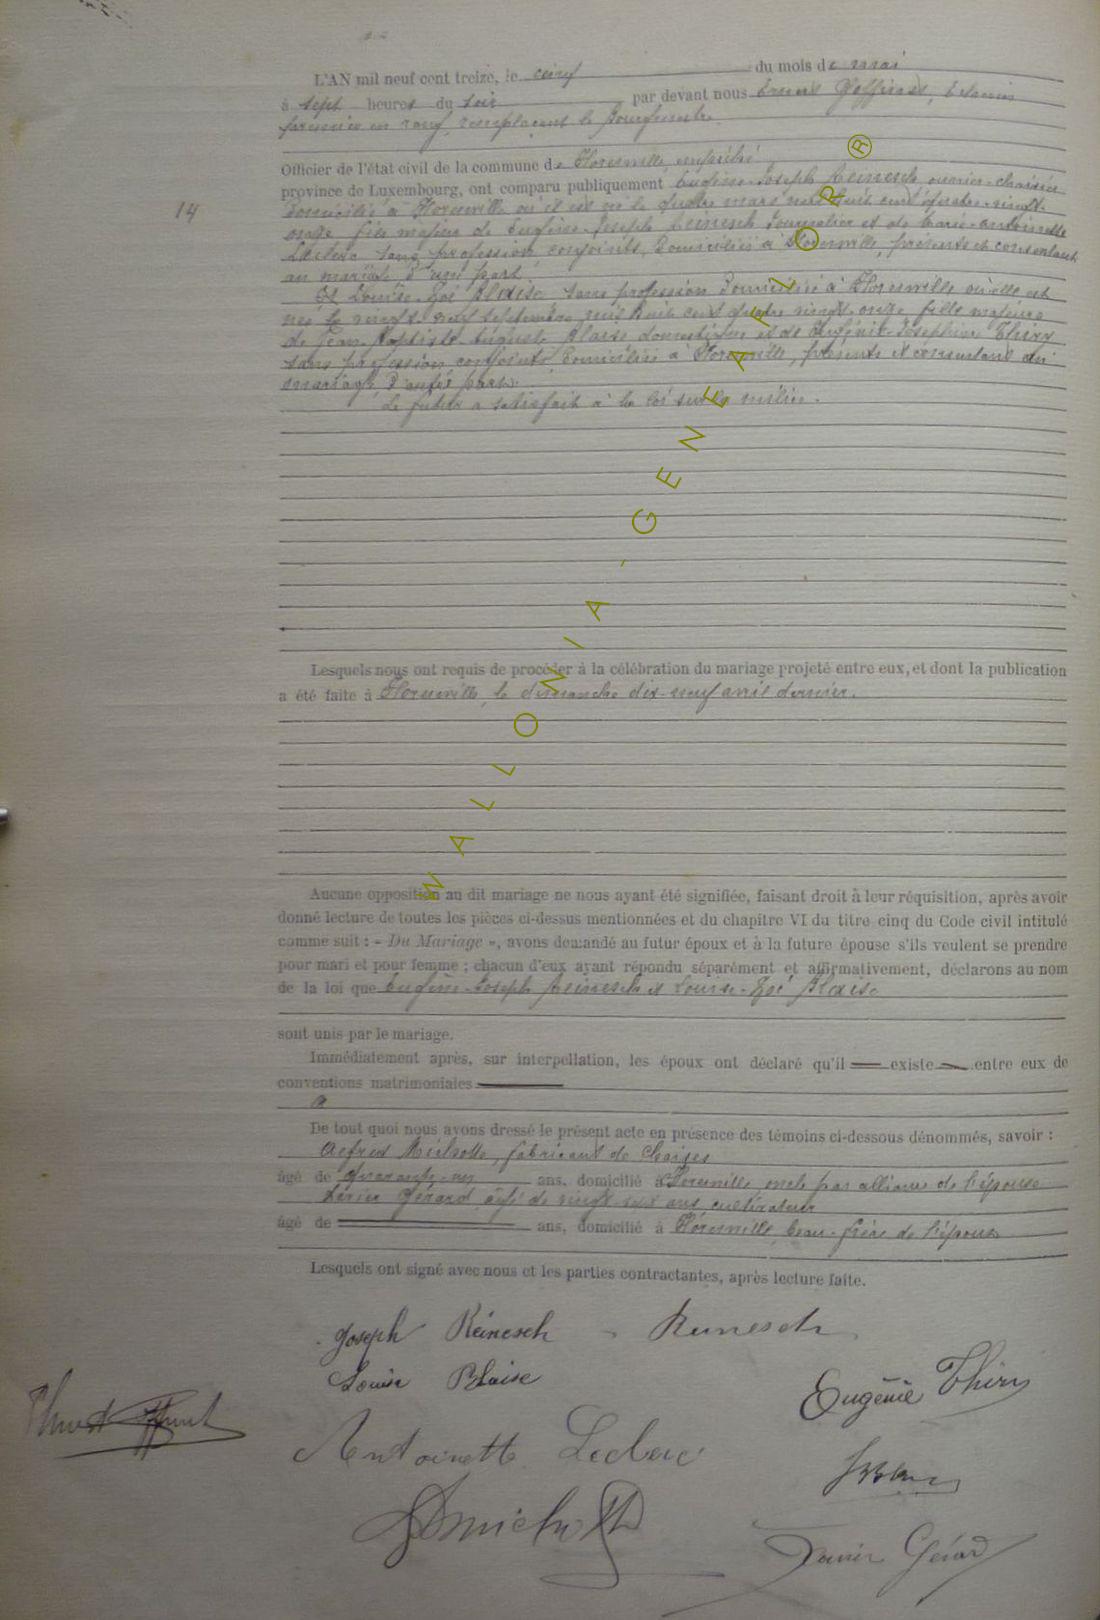 L'AN mil neuf cent treize, le cinq du mois de mai
à sept heures du soir par devant nous Goffinet, Echevin
premier en rang, remplaçant le Bourgmestre
Officier de l'état civil de la commune de Florenville empêché
province de Luxembourg, ont comparu publiquement Eugène-Joseph Reinesch ouvrier-chaisier
14
domicilié à Florenville où il est né le quatre mars mil huit cent quatre-vingt-
onze fils majeur de Eugène-Joseph Reinesch journalier et de Marie-Antoinette
Leclerc sans profession, conjoints, domiciliés à Florenville, présents et consentants
au mariage d'une part
Et Louise-Zoé Blaise sans profession domiciliée à Florenville où elle est
née le vingt-neuf septembre mil huit cent quatre vingt-onze fille majeure
de Jean-Baptiste-Auguste Blaise domestique et de Eugénie-Joséphine Thiry
sans profession conjoints, domiciliés à Florenville, présents et consentant au
mariage, d'autre part.
Le futur a satisfait à la loi sur la milice.
Lesquels nous ont requis de procéder à la célébration du mariage projeté entre eux, et dont la publication
a été faite à Florenville, le dimanche dix-neuf avril dernier.
Aucune opposition au dit mariage ne nous ayant été signifiée, faisant droit à leur réquisition, après avoir
donné lecture de toutes les pièces ci-dessus mentionnées et du chapitre VI du titre cinq du Code civil intitulé
comme suit : « Du Mariage », avons demandé au futur époux et à la future épouse s'ils veulent se prendre
pour mari et pour femme ; chacun d'eux ayant répondu séparément et affirmativement, déclarons au nom
de la loi que Eugène-Joseph Reinesch et Louise-Zoé Blaise
sont unis par le mariage.
Immédiatement après, sur interpellation, les époux ont déclaré qu'il existe entre eux de
conventions matrimoniales
De tout quoi nous avons dressé le présent acte en présence des témoins ci-dessous dénommés, savoir :
Alfred Michotte, fabricant de chaises
âgé de quarante-un ans, domicilié à Florenville oncle par alliance de l'épouse
Xavier Gérard, âgé de vingt-six ans, cultivateur
âgé de ans, domicilié à Florenville, beau-frère de l'épouse
Lesquels ont signé avec nous et les parties contractantes, après lecture faite.
Joseph Reinesch Reinesch
Louise Blaise Eugénie Thiry
Antoinette Leclerc
Michotte
Xavier Gérard
WALLONIA-GENEAFLOR ®